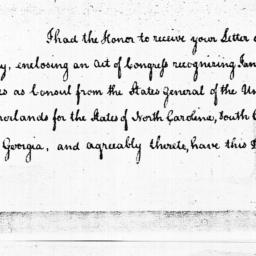 I had the Honor to receive your Letter
y, enclosing an Act of Congress recognizing
as Consul from the States General of the
erlands for the States of North Carolina, South
Georgia, and agreably thereto, have this